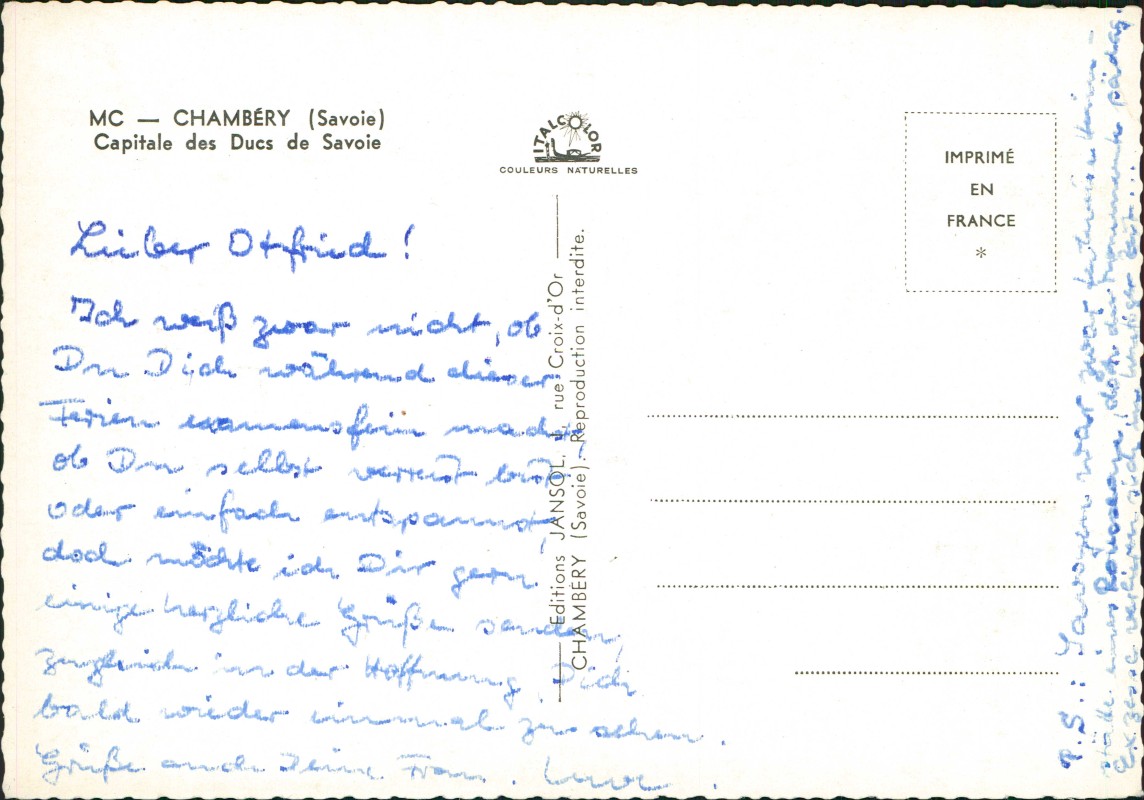 MC — CHAMBÉRY (Savoie)
Capitale des Ducs de Savoie
ITALCOLOR
COULEURS NATURELLES
IMPRIMÉ
EN
FRANCE
*
Editions JANSOL, 1, rue Croix-d'Or
CHAMBÉRY (Savoie). Reproduction interdite.
Lieber Otfried!
Ich weiß zwar nicht, ob
Du Dich während dieser
Ferien examensfein machst,
ob Du selbst verreist bist
oder einfach entspannst,
doch möchte ich Dir gern
einige herzliche Grüße senden,
zugleich in der Hoffnung, Dich
bald wieder einmal zu sehen.
Grüße auch Deine Frau.
P.S.: Savoyen war zwar
stätte eines Rousseaus, doch die pädag.
Exzesse verlieren sich in